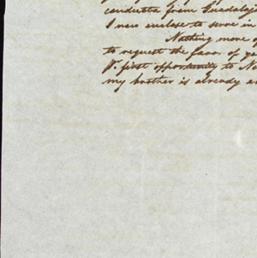 conducta from Guadalaj
I now enclose to serve in
Nothing more of
to request the favor of yo
Pr. first opportunity to Ne
my brother is already a